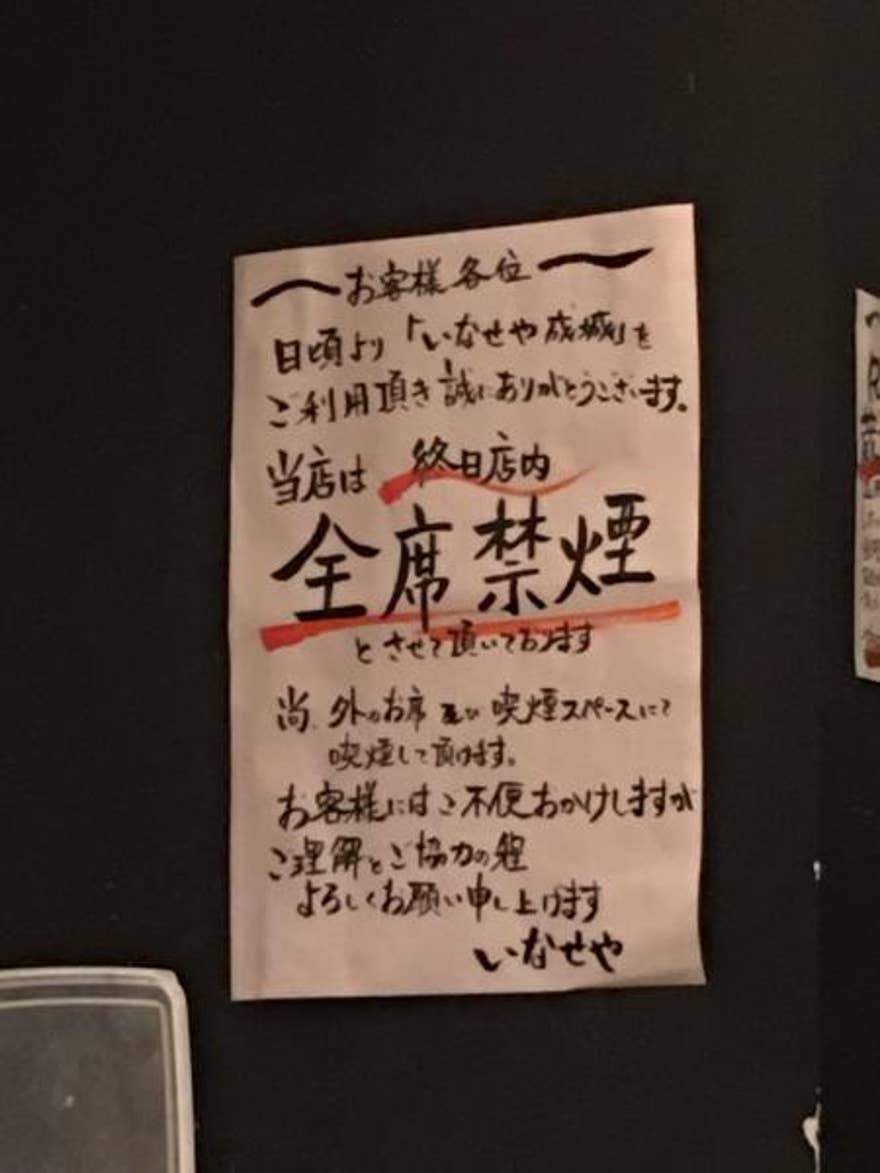 お客様各位
日頃より「いなせや成城」を
ご利用頂き誠にありがとうございます。
当店は 終日店内
全席禁煙
とさせて頂いております
尚、外のお席及び喫煙スペースにて
喫煙して頂けます。
お客様にはご不便おかけしますが
ご理解とご協力の程
よろしくお願い申し上げます
いなせや